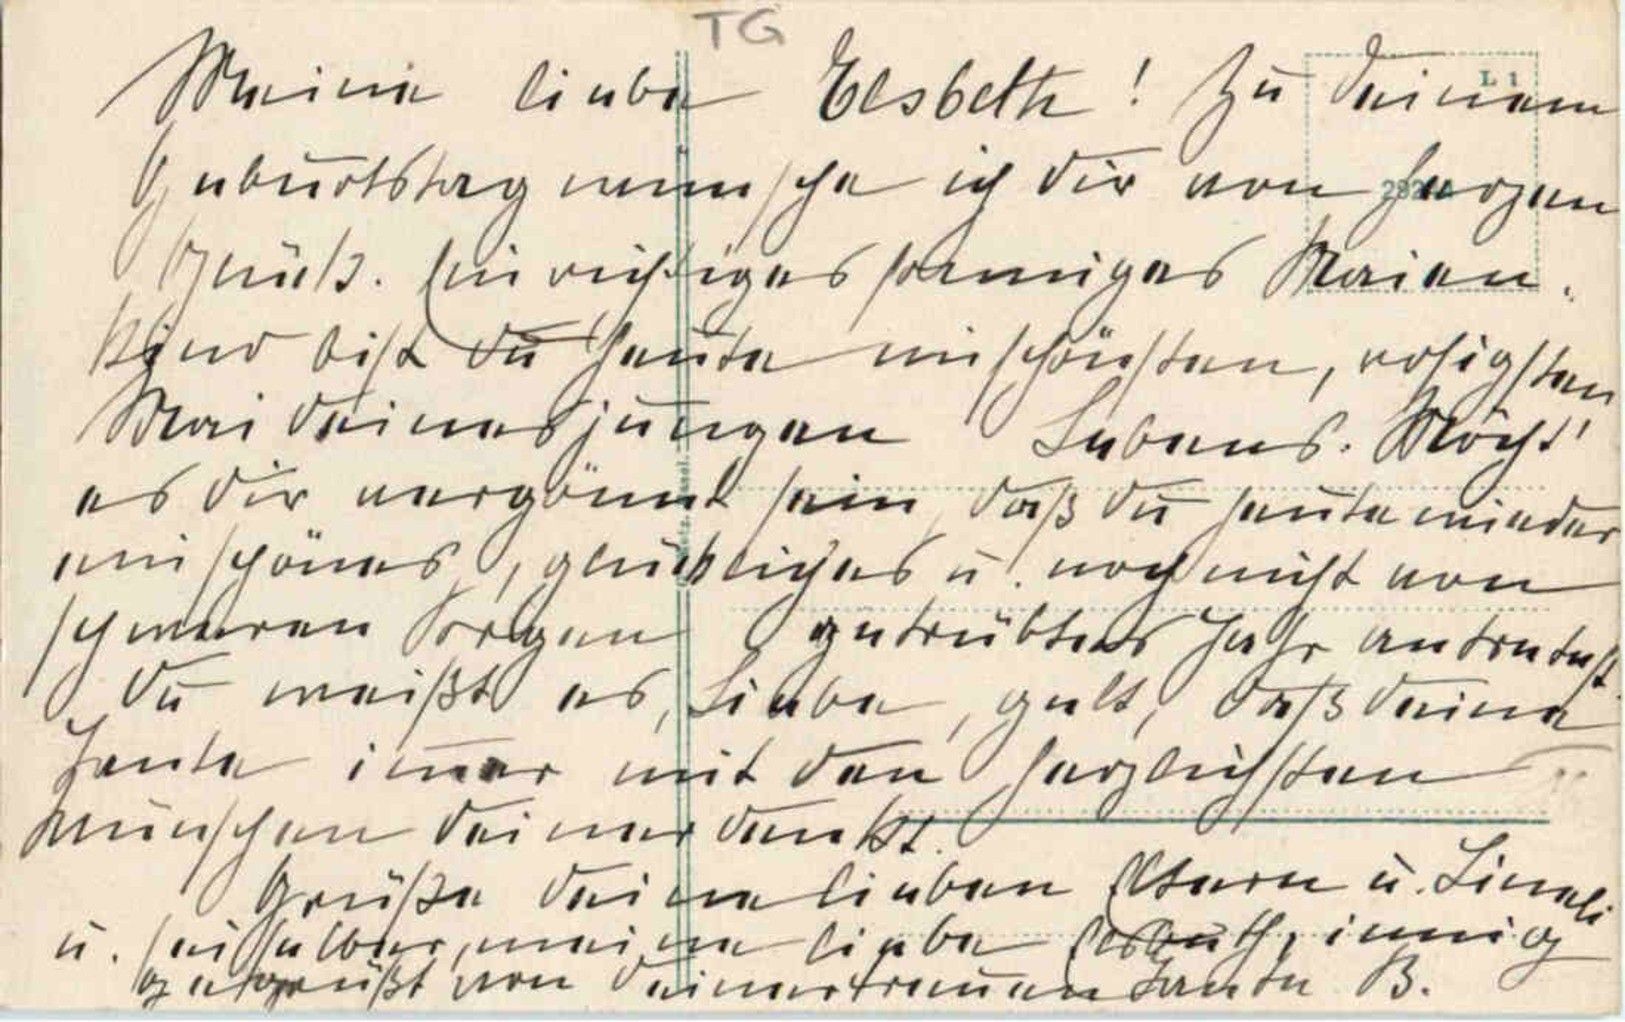 TG
Meine liebe Elsbeth! Zu deinem
L 1
Geburtstag wünsche ich dir von Herzen
Glück. Ein richtiges sonniges Maien-
kind bist du heute im schönsten, rosigsten
Mai deines jungen Lebens. Möcht'
es dir vergönnt sein, daß du heute wieder
ein schönes, glückliches u. noch nicht von
schweren Sorgen getrübtes Jahr antretest.
Du weißt es, Liebe, gelt, daß deine
Tante immer mit den herzlichsten
Wünschen deiner denkt.
Grüße deine lieben Eltern u. Lineli
u. sei selber, meine liebe Elsbeth, innig
gegrüßt von deiner treuen Tante B.